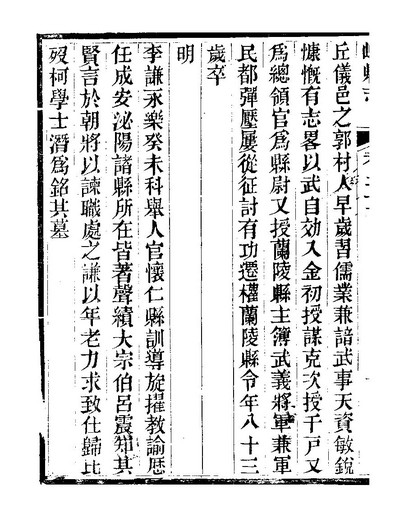 縣志
丘儀邑之郭村人早歲習儒業兼諳武事天資敏銳
慷慨有志畧以武自効入金初授謀克次授千戸又
爲總領官爲縣尉又授蘭陵縣主簿武義將軍兼軍
民都彈壓屢從征討有功遷權蘭陵縣令年八十三
歲卒
明
李謙永樂癸未科舉人官懷仁縣訓導旋擢教諭歷
任成安泌陽諸縣所在皆著聲績大宗伯呂震知其
賢言於朝將以諫職處之謙以年老力求致仕歸比
歿柯學士潛爲銘其墓